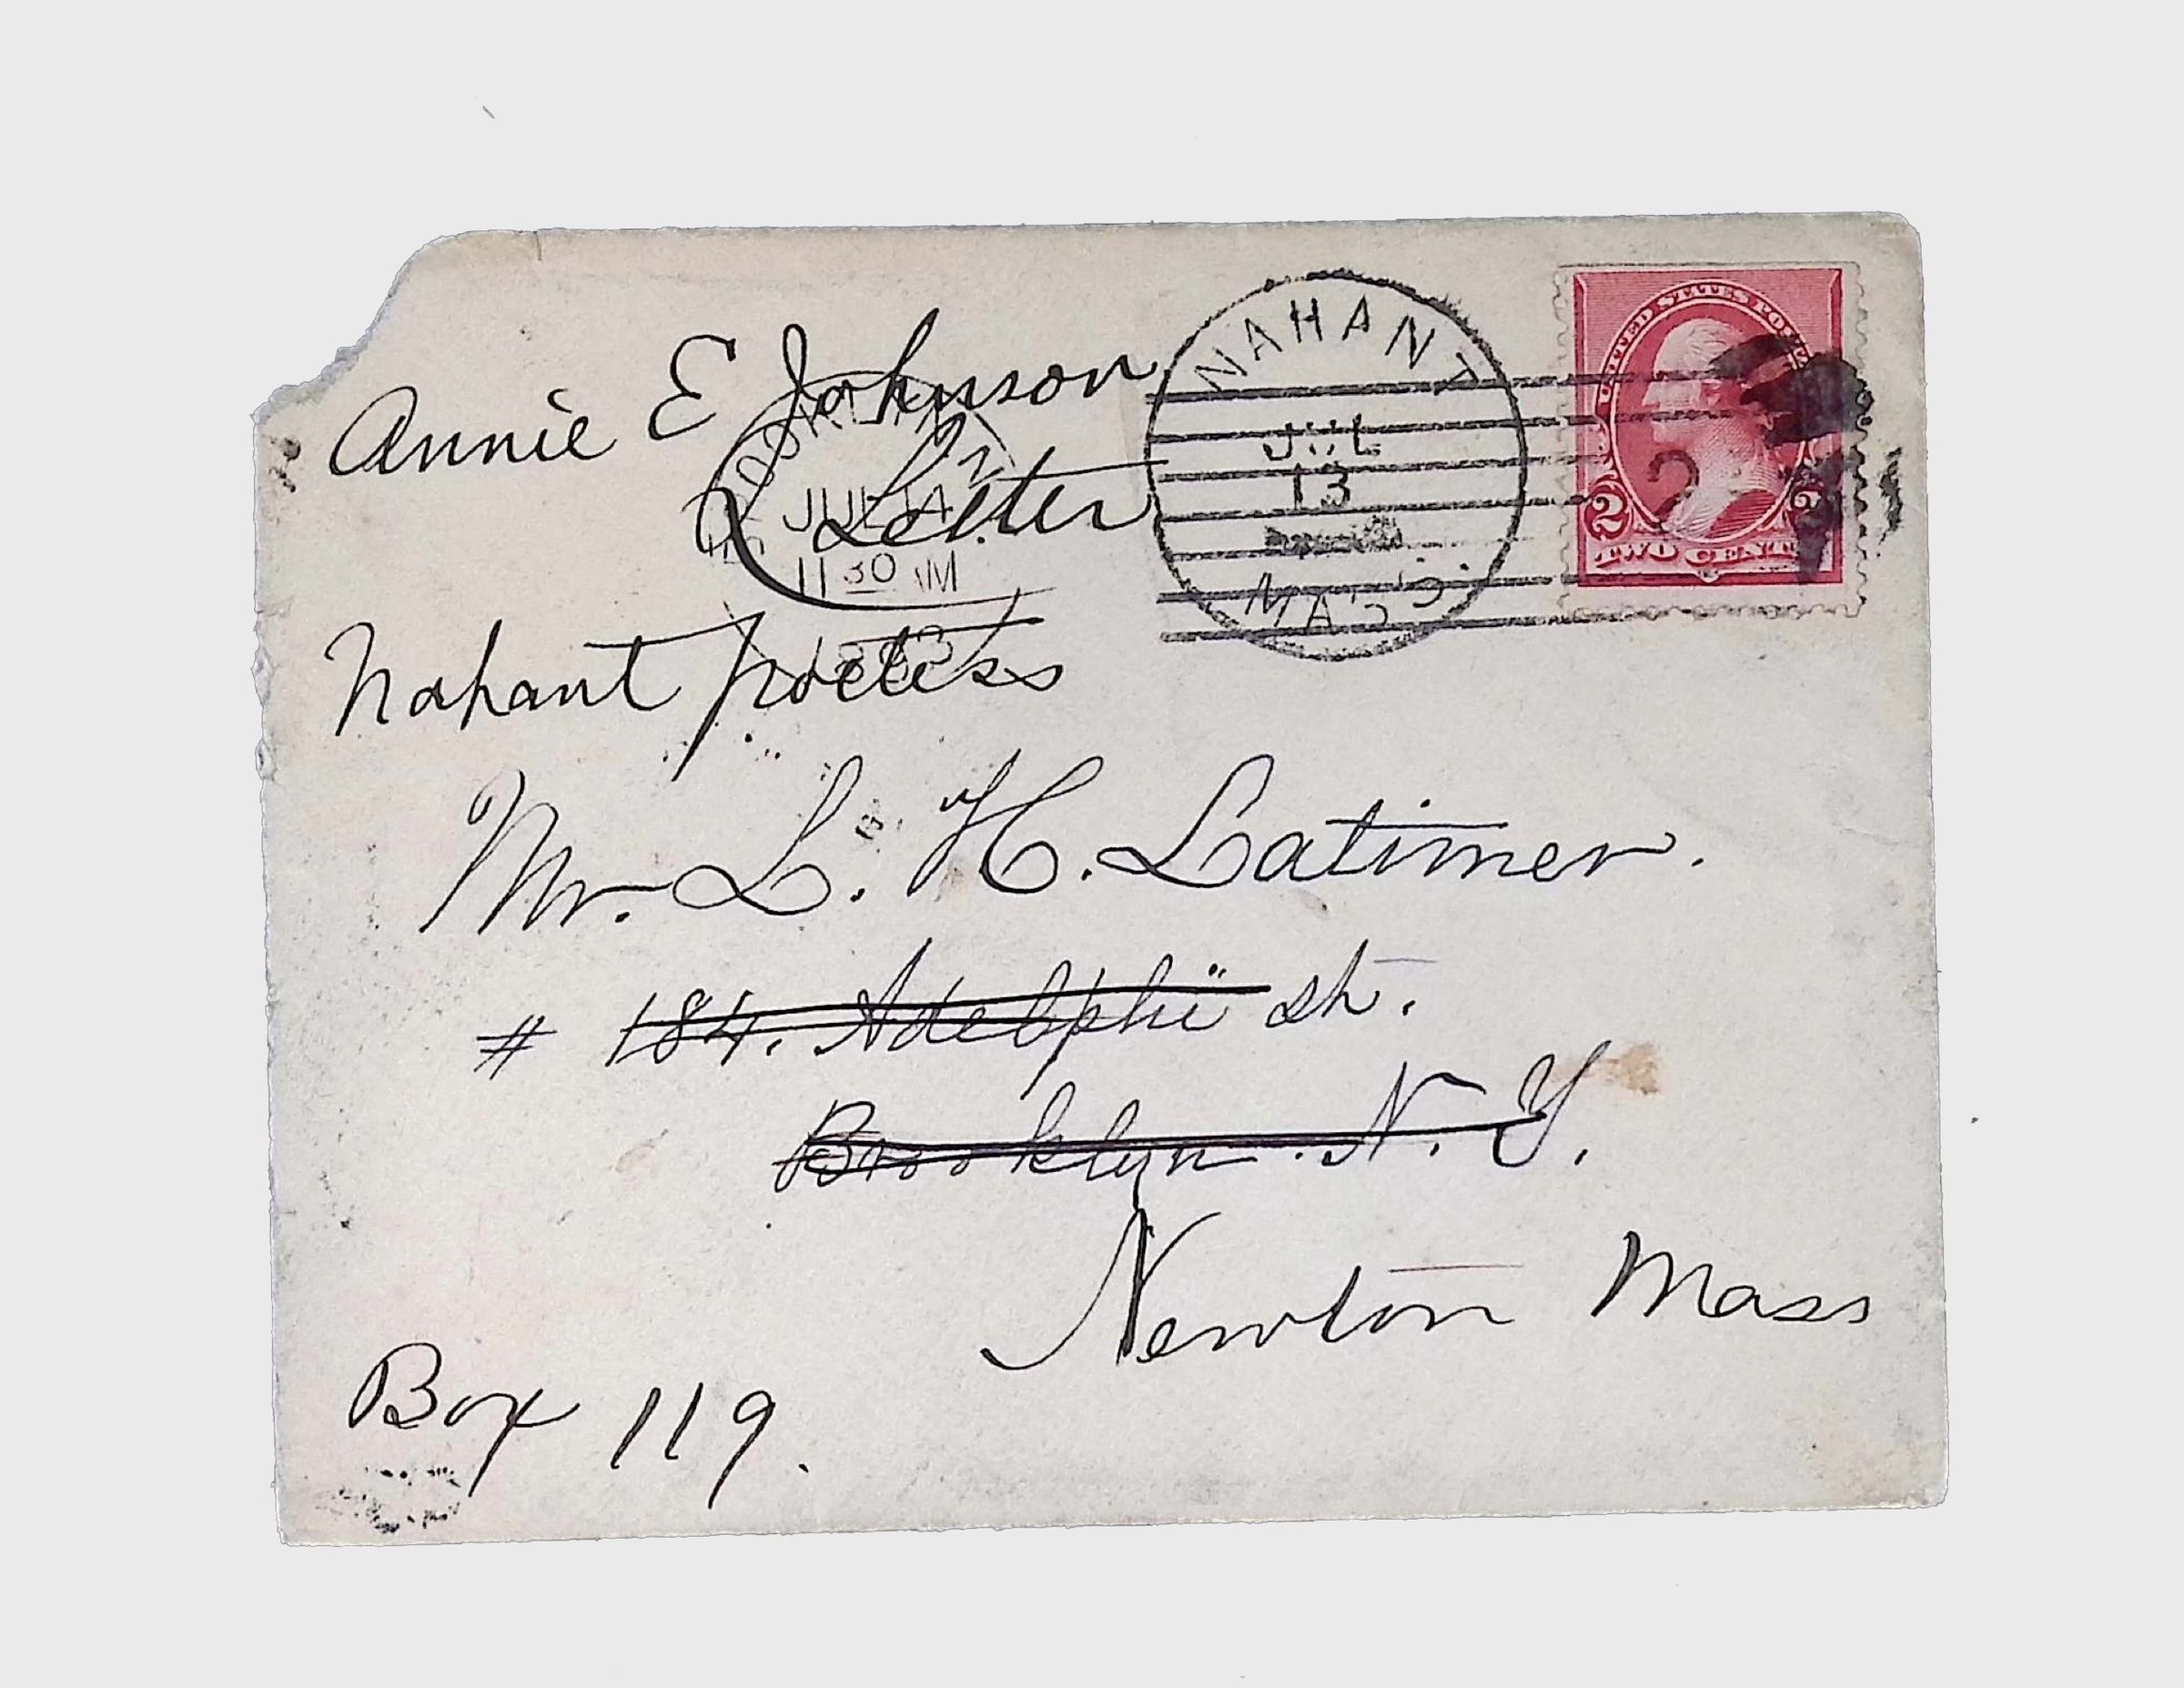 Annie E Johnson
Letter
Nahant poetess
NAHANT
JUL
13
MASS.
JUL 14
11 30 AM
UNITED STATES POS
2 2
TWO CENTS
2
Mr. L. H. Latimer.
# 184. Adelphi St.
Brooklyn. N. Y.
Newton Mass
Box 119.